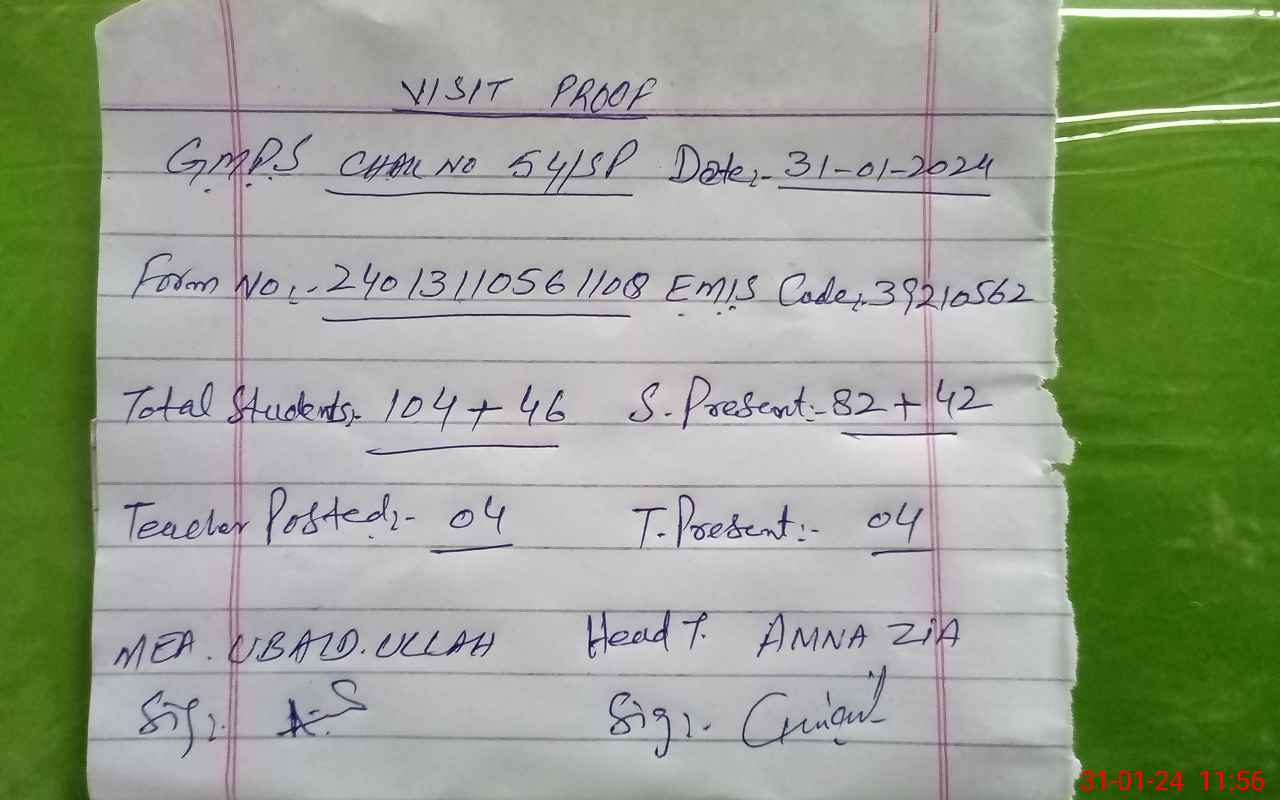 VISIT PROOF
G.M.P.S CHAK NO 54/SP Date:- 31-01-2024
Form No:- 24013110561108 EMIS Code:. 39210562
Total Students:- 104 + 46 S. Present:- 82 + 42
Teacher Posted:- 04 T. Present:- 04
MEA. UBAID.ULLAH Head T. AMNA ZIA
Sig:. Sig:.
31-01-24 11:56